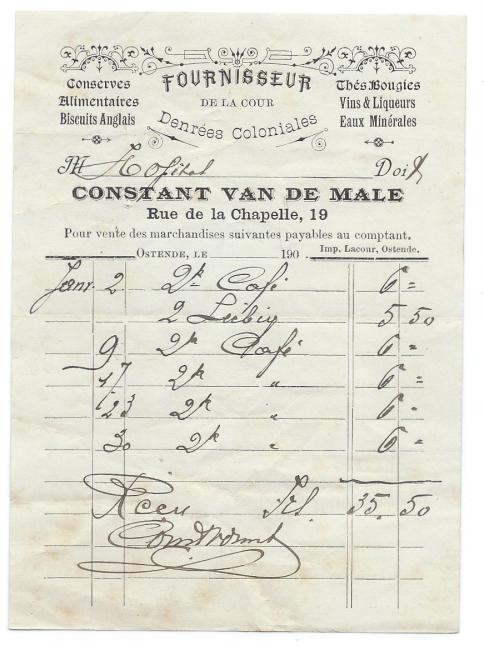 Conserves
Alimentaires
Biscuits Anglais
FOURNISSEUR
DE LA COUR
Denrées Coloniales
Thés Bougies
Vins & Liqueurs
Eaux Minérales
M Hopital Doit
CONSTANT VAN DE MALE
Rue de la Chapelle, 19
Pour vente des marchandises suivantes payables au comptant.
OSTENDE, LE 190
Imp. Lacour, Ostende.
Janv. 2 2k Café 6 =
2 Liebig 5 50
9 2k Café 6 =
17 2k " 6 =
23 2k " 6 =
30 2k " 6 =
35. 50